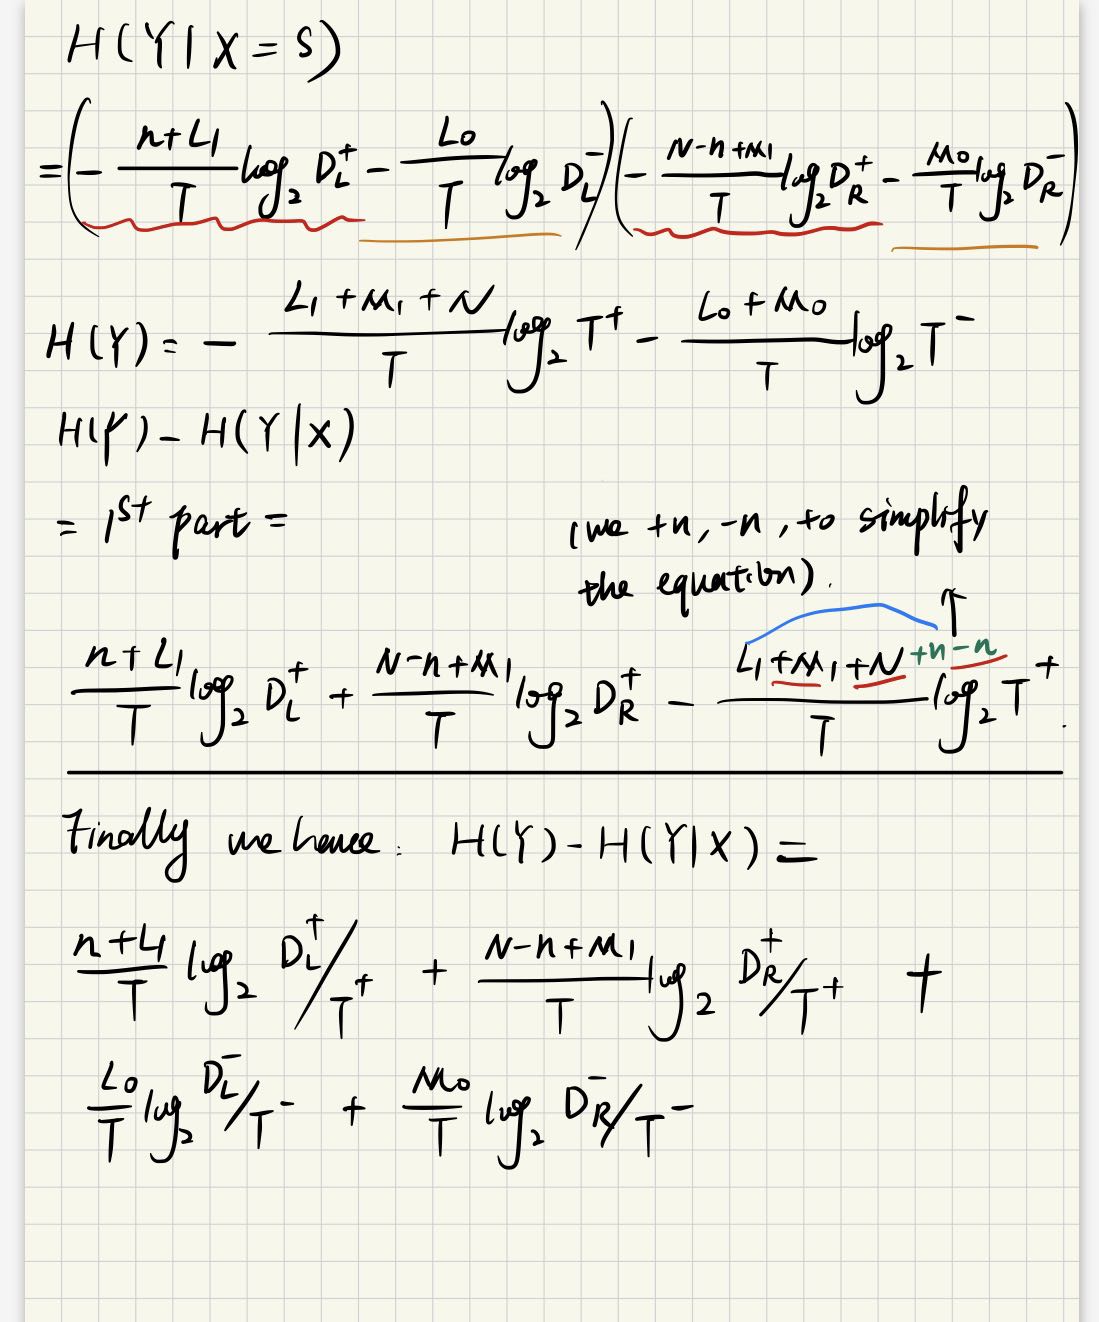 H(Y|X=S)
=(-\frac{n+L_1}{T}log_2 D_L^+ - \frac{L_0}{T}log_2 D_L^-)(-\frac{N-n+M_1}{T}log_2 D_R^+ - \frac{M_0}{T}log_2 D_R^-)
H(Y) = -\frac{L_1+M_1+N}{T}log_2 T^+ - \frac{L_0+M_0}{T}log_2 T^-
H(Y) - H(Y|X)
= 1st part =
(we +n, -n, to simplify
the equation).
\frac{n+L_1}{T}log_2 D_L^+ + \frac{N-n+M_1}{T}log_2 D_R^+ - \frac{L_1+M_1+N+n-n}{T}log_2 T^+.
Finally we hence: H(Y)-H(Y|X) =
\frac{n+L_1}{T}log_2 D_L^+/T^+ + \frac{N-n+M_1}{T}log_2 D_R^+/T^+ +
\frac{L_0}{T}log_2 D_L^-/T^- + \frac{M_0}{T}log_2 D_R^-/T^-